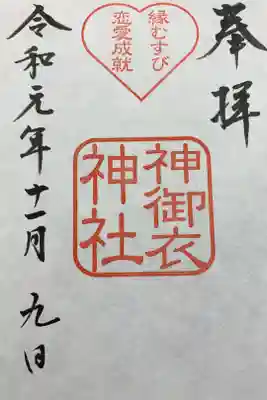 奉拝
縁むすび
恋愛成就
神御衣
神社
令和元年十一月九日